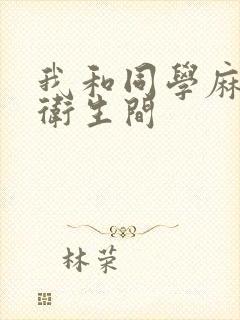 我和同學麻
衛生間
林荣